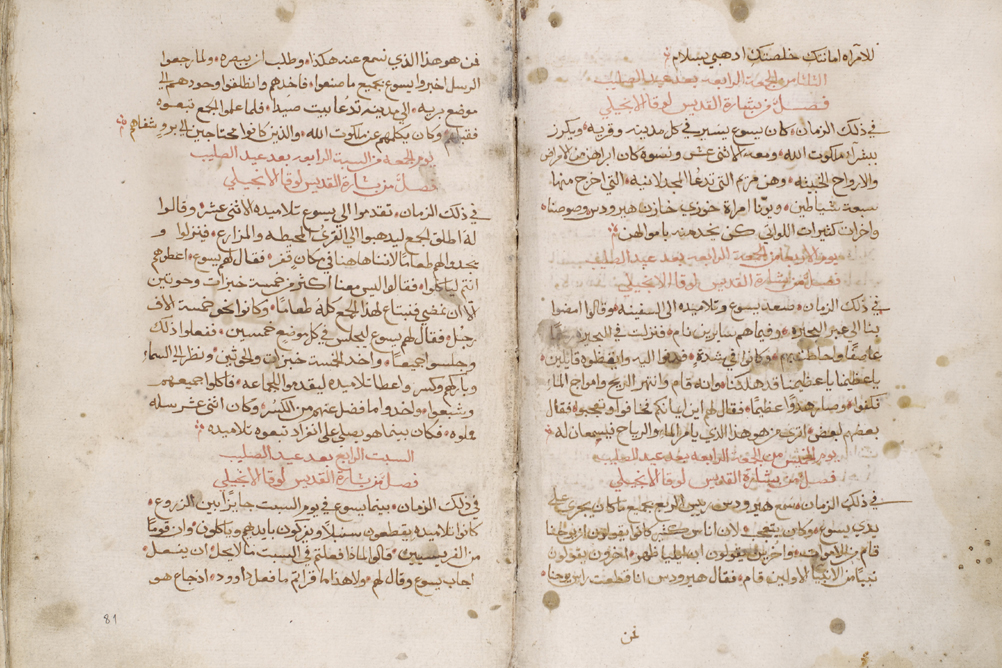 للامرأه امانتك خلصتك ادهبي بسلام
الثلثا من الجمعة الرابعه بعد عيد الصليب
فصل من بشارة القديس لوقا الانجيلي
في ذلك الزمان كان يسوع يسير في كل مدينه وقريه ويكرز
يبشر بملكوت الله ومعه الاثنى عشر ونسوه كان ابراهن من الامراض
والارواح الخبيثه وهن مريم التي تدعا المجدلانيه التي اخرج منها
سبعة شياطين ويونّا امراة خوزي خازن هيرودس وصوصناه
واخرات كثيرات اللواتي كن يخدمنه باموالهن
يوم الاربعا من الجمعة الرابعه بعد عيد الصليب
فصل من بشارة القديس لوقا الانجيلي
في ذلك الزمان صعد يسوع وتلاميذه الى السفينه وقال امضوا
بنا الى عبر البحيره وفيما هم سايرين نام فنزلت في البحيره
عاصفا واحاط بهم وكانوا في شدة فدنوا اليه وايقظوه قايلين
يا عظيمنا يا عظيمنا قد هلكنا وانه قام وانتهر الريح وامواج الماء
فكفوا وصار هدوًا عظيمًا فقال لهم اين ايمانكم فخافوا وتعجبوا فقال
بعضهم لبعض اترى من هو هذا الذي يامر الماء والرياح فيسمعان له
يوم الخميس من الجمعة الرابعه بعد عيد الصليب
فصل من بشارة القديس لوقا الانجيلي
في ذلك الزمان سمع هيرودس رييس الربع بجميع ما كان يجري على
يدي يسوع وكان يتعجب لان اناس كثير كانوا يقولون ان يوحنا
قام من الاموات واخرين يقولون ان ايليا ظهر اخرون يقولون
نبيًا من الانبيا الاولين قام فقال هيرودس انا قطعت راس يوحنا
فمن
فمن هو هذا الذي نسمع عنه هكذا وطلب ان يبصره ولما رجعوا
الرسل اخبروا يسوع بجميع ما صنعوا فاخدهم وانطلقوا وحدهم الى
موضع بريه الى مدينه تدعا بيت صيدا فلما علموا الجمع تبعوه
فقبلهم وكان يكلمهم عن ملكوت الله والذين كانوا محتاجين الى برو شفاهم
يوم الجمعه من السبت الرابعه بعد عيد الصليب
فصل من بشارة القديس لوقا الانجيلي
في ذلك الزمان تقدموا الى يسوع تلاميذه الاثنى عشر وقالوا
له اطلق الجمع ليدهبوا الى القرى المحيطه والمزارع فينزلوا و
يجدد لهم طعامًا لاننا هاهنا في مكان قفر فقال لهم يسوع اعطوهم
انتم لياكلوا فقالوا ليس معنا اكثر من خمسة خبزات وحوتين
الا ان نمضي فنبتاع لهذا الجمع كله طعامًا وكانوا نحو خمسة الاف
رجل فقال لهم يسوع اجلسوهم في كل موضع خمسين ففعلوا ذلك
وجلسوا جميعًا واخد الخمسة خبزات والحوتين ونظر الى السماء
وباركهم وكسر واعطا تلاميذه ليقدموا للجماعه فاكلوا جميعهم
وشبعوا واخدوا ما فضل عنهم من الكسر وكان اثنى عشر سله
مملوه فكان بينما هو يصلي على انفراد تبعوه تلاميذه
السبت الرابع بعد عيد الصليب
فصل من بشارة القديس لوقا الانجيلي
في ذلك الزمان بينما يسوع في يوم السبت جايزًا بين الزروع
كانوا تلاميذه يقطعون سنبلاً ويفركون بايديهم وياكلون وان قومًا
من الفريسيين قالوا لماذا فعلتم في السبت ما لا يحل ان يفعل
اجاب يسوع وقال لهم ولا هذا ما قراتم ما فعل داوود اذ جاع هو
81